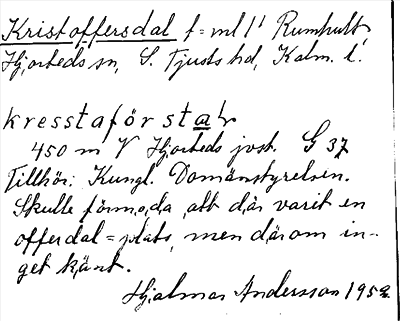 Kristoffersdal t = ml 1' Rumhult
Hjorteds sn, S. Tjusts hd, Kalm. l.
kresstaförstaɭr
450 m V Hjorteds jvst. G 37
Tillhör: Kungl. Domänstyrelsen.
Skulle förmoda att där varit en
offerdal = plats, men därom in-
get känt.
Hjalmar Andersson 195